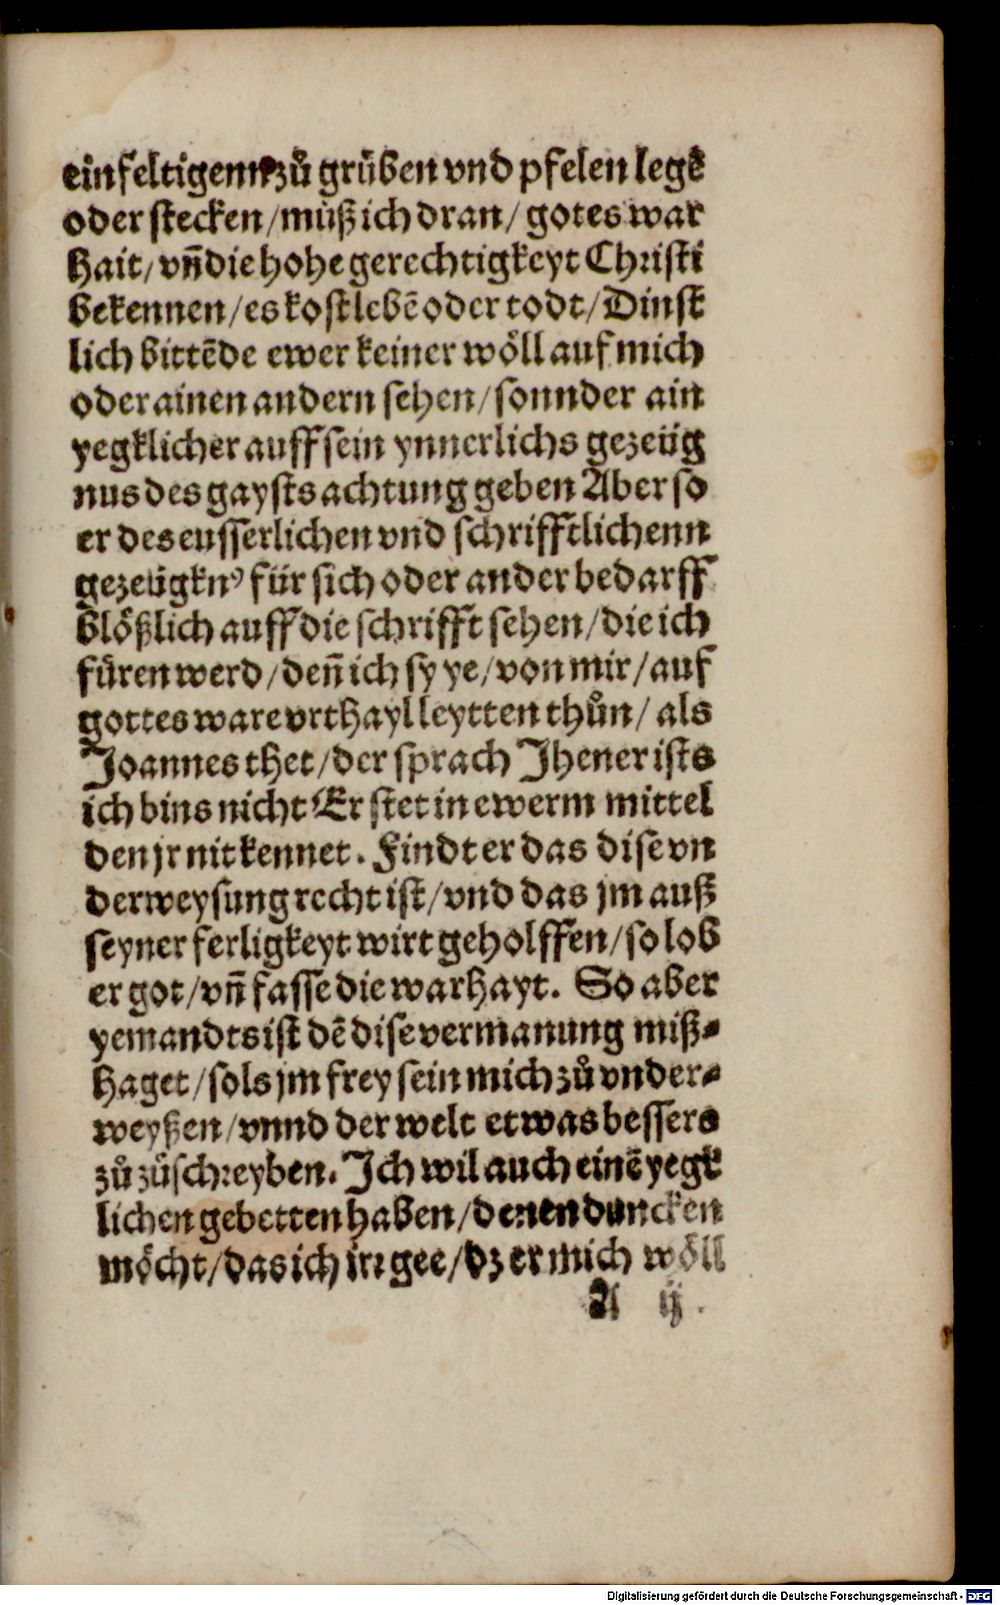 einfeltigenn zů grůben vnd pfelen legẽ
oder stecken/ můß ich dran/ gotes war
hait/ vñ die hohe gerechtigkeyt Christi
bekennen/ es kost lebẽ oder todt/ Dinst
lich bittẽde ewer keiner wöll auf mich
oder ainen andern sehen/ sonnder ain
yegklicher auff sein ynnerlichs gezeüg
nus des gaysts achtung geben Aber so
er des eusserlichen vnd schrifftlichenn
gezeügknꝰ für sich oder ander bedarff
blößlich auff die schrifft sehen/ die ich
füren werd/ deñ ich sy ye/ von mir/ auf
gottes ware vrthayl leytten thůn/ als
Joannes thet/ der sprach Jhener ists
ich bins nicht Er stet in ewerm mittel
den jr nit kennet. Findt er das dise vn
derweysung recht ist/ vnd das jm auß
seyner ferligkeyt wirt geholffen/ so lob
er got/ vñ fasse die warhayt. So aber
yemandts ist dẽ dise vermanung miß⸗
haget/ sols jm frey sein mich zů vnder⸗
weyßen/ vnnd der welt etwas bessers
zů zůschreyben. Jch wil auch einẽ yegk
lichen gebetten haben/ denen duncken
möcht/ das ich irr gee/ dz er mich wöll
A ij.
Digitalisierung gefördert durch die Deutsche Forschungsgemeinschaft - DFG